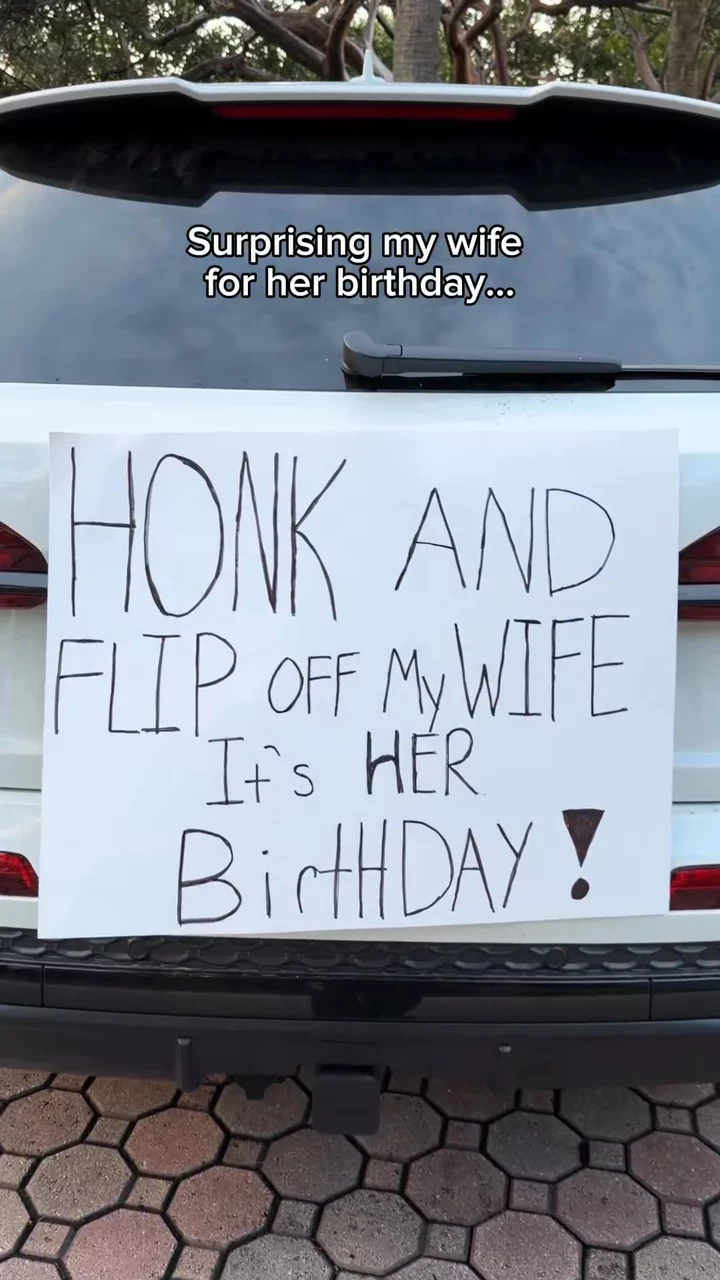 Surprising my wife
for her birthday...
HONK AND
FLIP OFF My WIFE
It's HER
BirtHDAY!